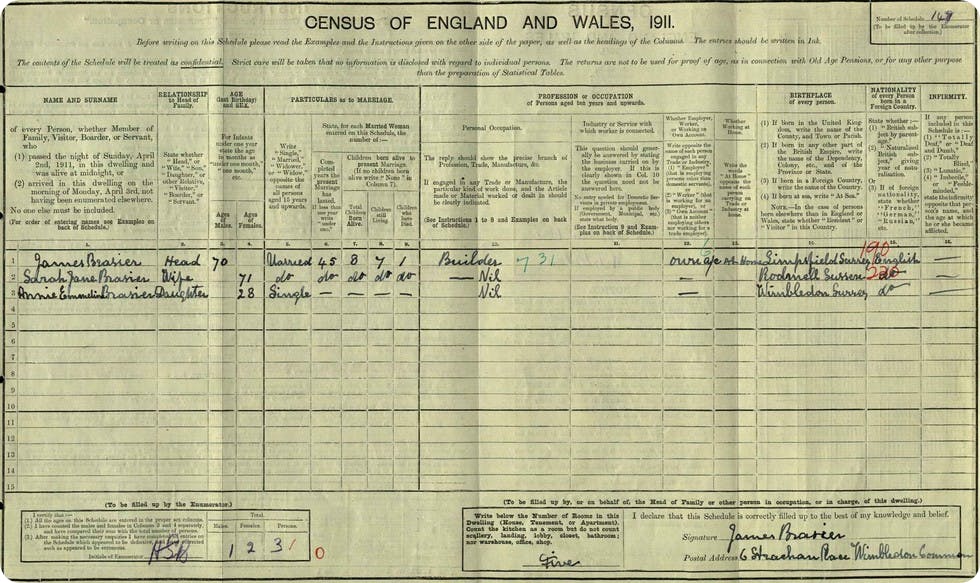 CENSUS OF ENGLAND AND WALES, 1911.
Number of Schedule 149
(To be filled up by the Enumerator after collection.)
Before writing on this Schedule please read the Examples and the Instructions given on the other side of the paper, as well as the headings of the Columns. The entries should be written in Ink.
The contents of the Schedule will be treated as confidential. Strict care will be taken that no information is disclosed with regard to individual persons. The returns are not to be used for proof of age, as in connection with Old Age Pensions, or for any other purpose
than the preparation of Statistical Tables.
NAME AND SURNAME
RELATIONSHIP to Head of Family.
AGE (last Birthday) and SEX.
PARTICULARS as to MARRIAGE.
PROFESSION or OCCUPATION
of Persons aged ten years and upwards.
BIRTHPLACE of every person.
NATIONALITY of every Person born in a Foreign Country.
INFIRMITY.
of every Person, whether Member of Family, Visitor, Boarder, or Servant, who
(1) passed the night of Sunday, April 2nd, 1911, in this dwelling and was alive at midnight, or
(2) arrived in this dwelling on the morning of Monday, April 3rd, not having been enumerated elsewhere.
No one else must be included.
For order of entering names see Examples on back of Schedule.
State whether "Head," or "Wife," "Son," "Daughter," or other Relative, "Visitor," "Boarder," or "Servant."
For Infants under one year state the age in months as "under one month," "one month," etc.
Ages of Males.
Ages of Females.
Write "Single," "Married," "Widower," or "Widow," opposite the names of all persons aged 15 years and upwards.
State, for each Married Woman entered on this Schedule, the number of :—
Completed years the present Marriage has lasted. If less than one year write "under one."
Children born alive to present Marriage. (If no children born alive write "None" in Column 7).
Total Children Born Alive.
Children still Living.
Children who have Died.
Personal Occupation.
The reply should show the precise branch of Profession, Trade, Manufacture, &c.
If engaged in any Trade or Manufacture, the particular kind of work done, and the Article made or Material worked or dealt in should be clearly indicated.
(See Instructions 1 to 8 and Examples on back of Schedule.)
Industry or Service with which worker is connected.
This question should generally be answered by stating the business carried on by the employer. If this is clearly shown in Col. 10 the question need not be answered here.
No entry needed for Domestic Servants in private employment.
If employed by a public body (Government, Municipal, etc.) state what body.
(See Instruction 9 and Examples on back of Schedule.)
Whether Employer, Worker, or Working on Own Account.
Whether Working at Home.
(1) If born in the United Kingdom, write the name of the County, and Town or Parish.
(2) If born in any other part of the British Empire, write the name of the Dependency, Colony, etc., and of the Province or State.
(3) If born in a Foreign Country, write the name of the Country.
(4) If born at sea, write "At Sea."
NOTE.—In the case of persons born elsewhere than in England or Wales, state whether "Resident" or "Visitor" in this Country.
1. 2. 3. 4. 5. 6. 7. 8. 9. 10. 11. 12. 13. 14. 15. 16.
190
1 James Brasier Head 70 Married 45 8 7 1 Builder 731 own a/c At Home Limpsfield Surrey English
2 Sarah Jane Brasier Wife 71 do do do do do — Nil — Rodmell Sussex do
3 Annie Brasier Daughter 28 Single — — — — Nil — Wimbledon Surrey do
4
5
6
7
8
9
10
11
12
13
14
15
(To be filled up by the Enumerator.)
I certify that :—
(1) All the ages on this Schedule are entered in the proper sex columns.
(2) I have counted the males and females in Columns 3 and 4 separately, and have compared their sum with the total number of persons.
Initials of Enumerator
Total.
Males. Females. Persons.
1 2 3
0
(To be filled up by, or on behalf of, the Head of Family or other person in occupation, or in charge, of this dwelling.)
Write below the Number of Rooms in this Dwelling (House, Tenement, or Apartment). Count the kitchen as a room but do not count scullery, landing, lobby, closet, bathroom; nor warehouse, office, shop.
Five
I declare that this Schedule is correctly filled up to the best of my knowledge and belief.
Signature James Brasier
Postal Address 6 Strachan Place Wimbledon Common